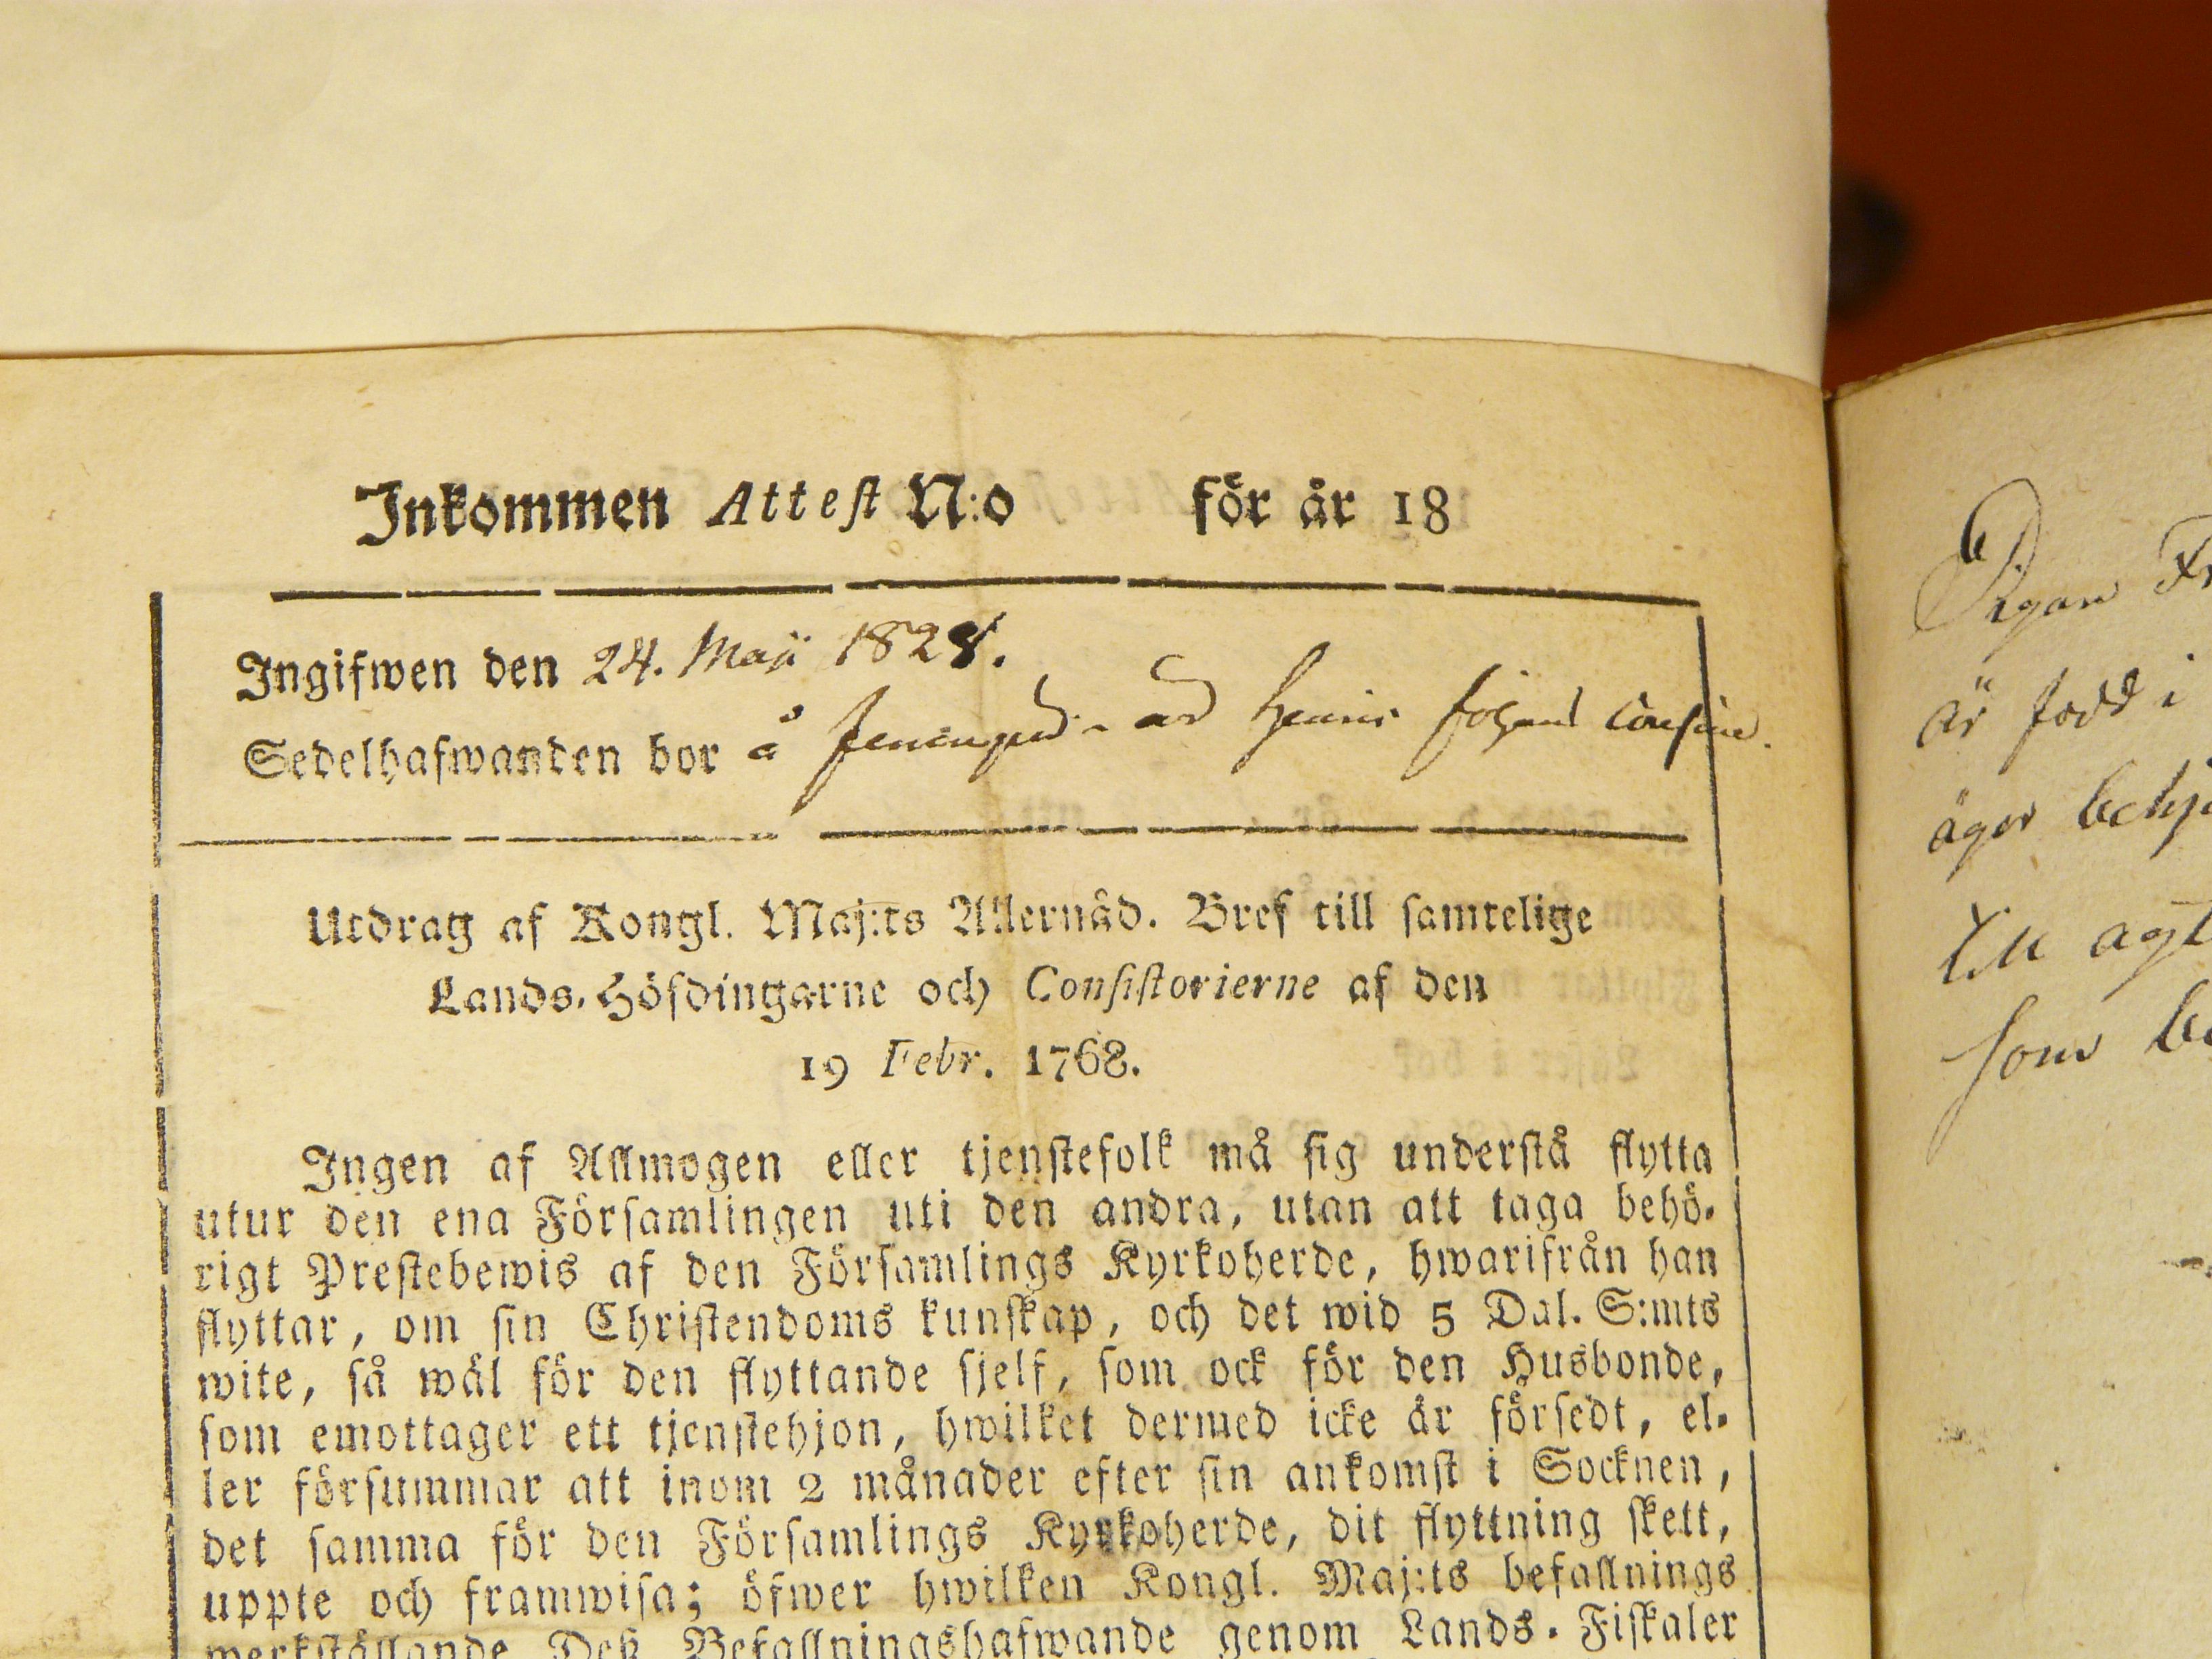 Inkommen Attest N:o för år 18
Ingifwen den 24. Maji 1828.
Sedelhafwanden bor å
Utdrag af Kongl. Maj:ts Allernåd. Bref till samtelige
Lands-Höfdingarne och Consistorierne af den
19 Febr. 1768.
Ingen af Allmogen eller tjenstefolk må sig understå flytta
utur den ena Församlingen uti den andra, utan att taga behö-
rigt Prestebewis af den Församlings Kyrkoherde, hwarifrån han
flyttar, om sin Christendoms kunskap, och det wid 5 Dal. S:mts
wite, så wäl för den flyttande sjelf, som ock för den Husbonde,
som emottager ett tjenstehjon, hwilket dermed icke är försedt, el-
ler försummar att inom 2 månader efter sin ankomst i Socknen,
det samma för den Församlings Kyrkoherde, dit flyttning skett,
uppte och framwisa; öfwer hwilken Kongl. Maj:ts befallnings
werkställande Deß Befallningshafwande genom Lands-Fiskaler
Pigan
är född i
äger
till
som